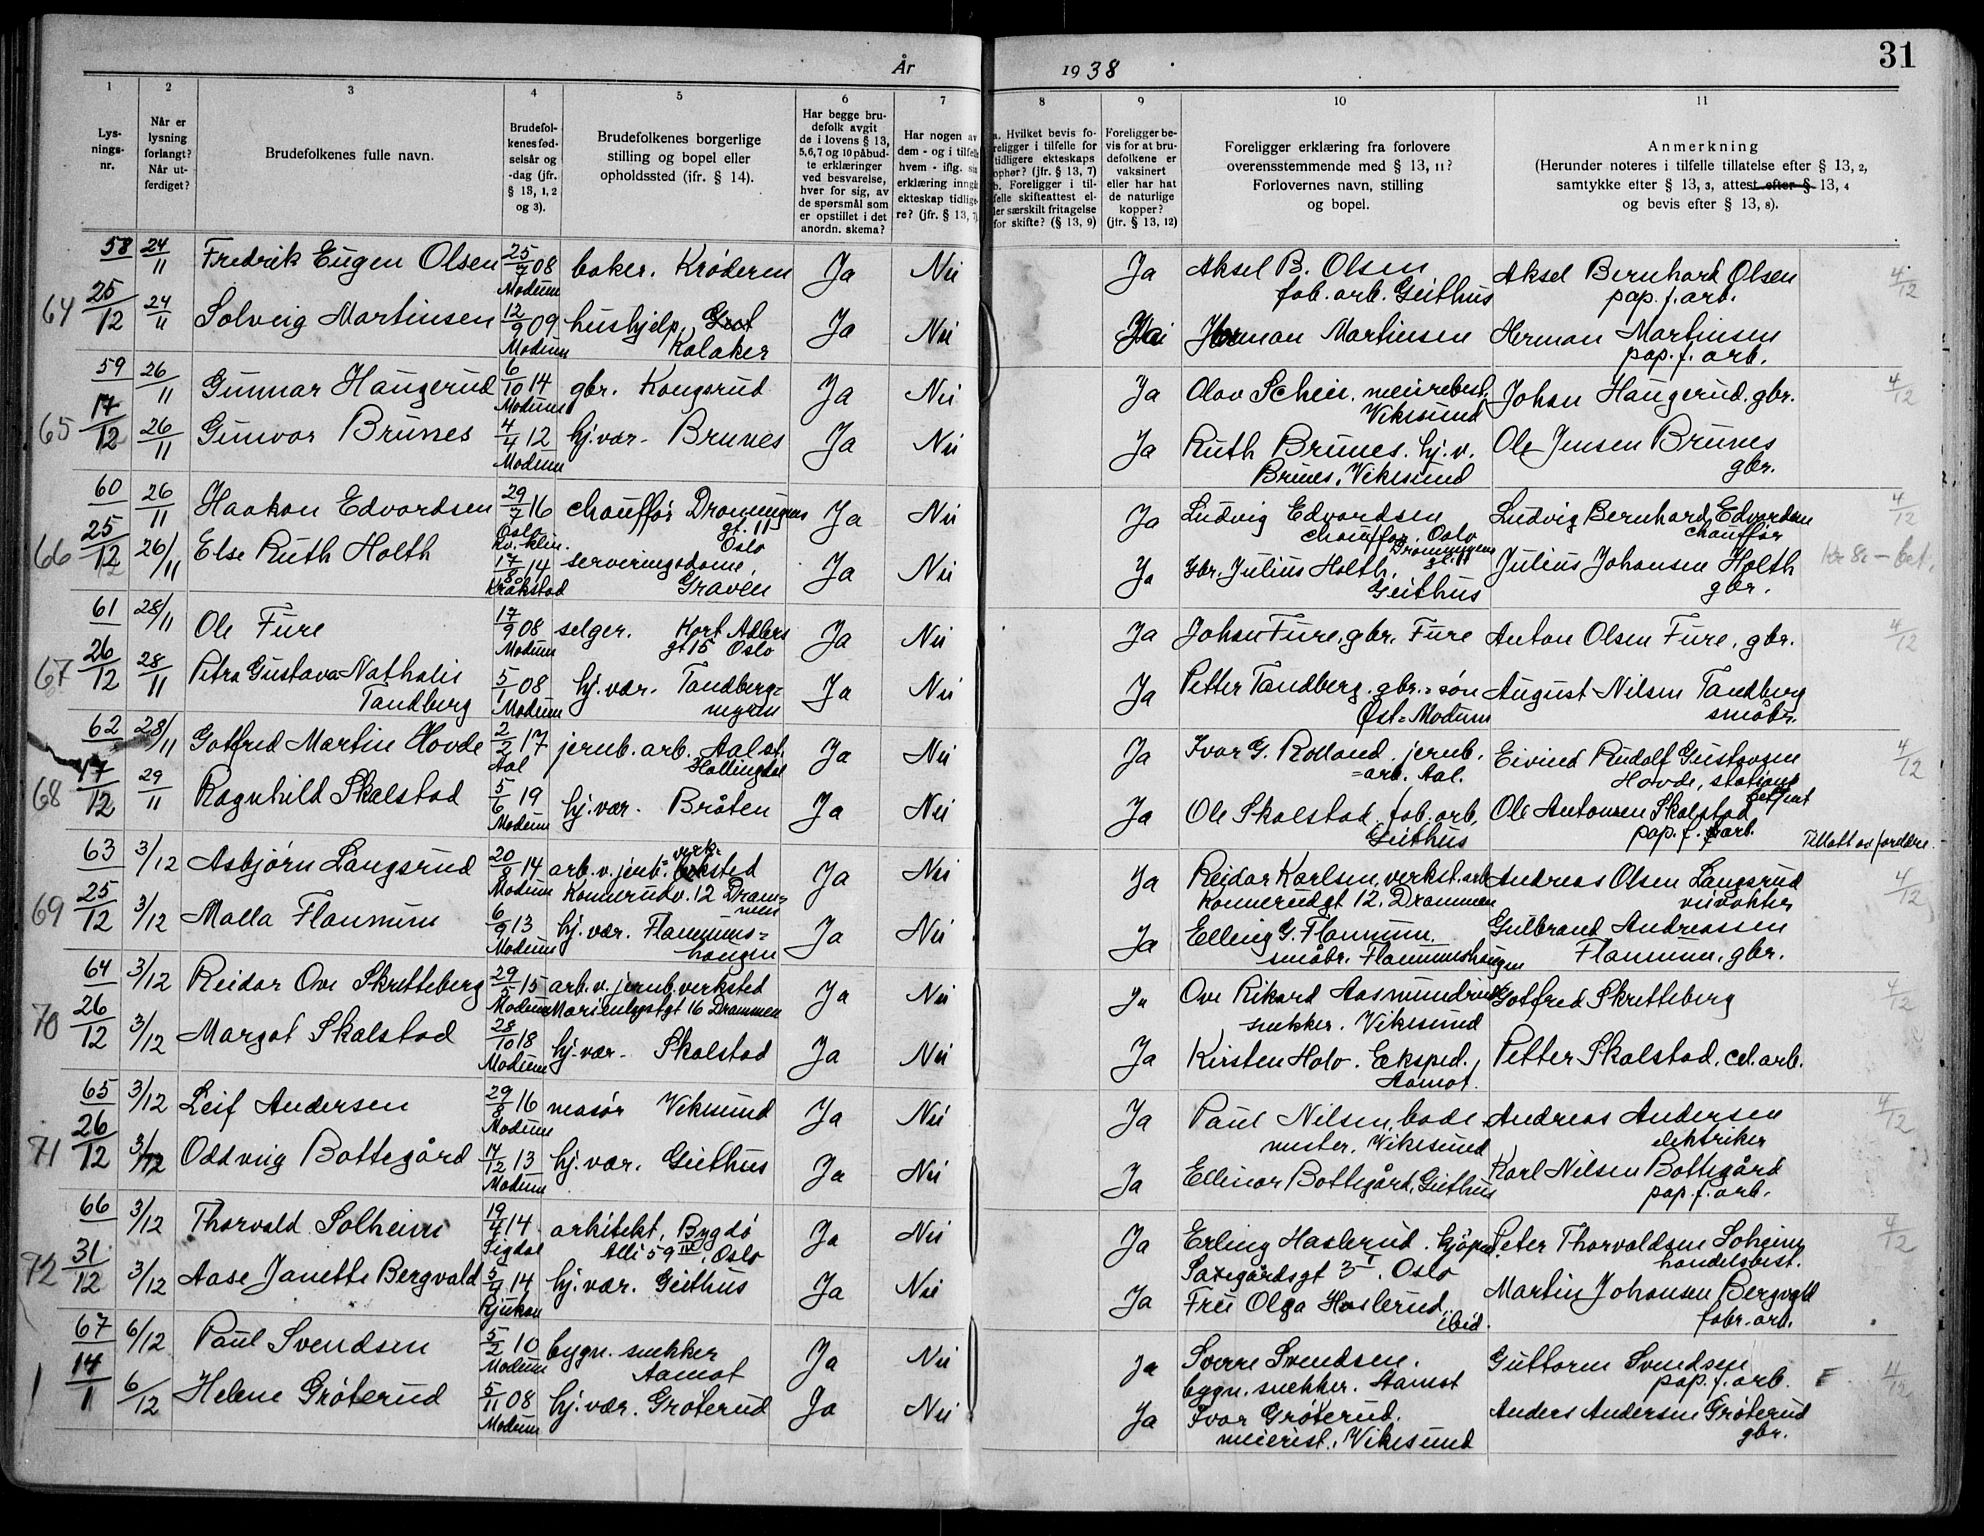 31
År 1938
1 2 3 4 5 6 7 8 9 10 11
Lys-
nings-
nr.
Når er
lysning
forlangt?
Når ut-
ferdiget?
Brudefolkenes fulle navn.
Brudefol-
kenes fød-
selsår og
-dag (jfr.
§ 13, 1, 2
og 3).
Brudefolkenes borgerlige
stilling og bopel eller
opholdssted (ifr. § 14).
Har begge bru-
defolk avgit
de i lovens § 13,
5,6,7 og 10 påbud-
te erklæringer
ved besvarelse,
hver for sig, av
de spørsmål som
er opstillet i det
anordn. skema?
Har nogen av
dem - og i tilfelle
hvem - iflg. sin
erklæring inngåt
ekteskap tidlige-
re? (jfr. § 13, 7)
a. Hvilket bevis fo-
religger i tilfelle for
tidligere ekteskaps
ophør? (jfr. § 13, 7)
b. Foreligger i til-
felle skifteattest el-
ler særskilt fritagelse
for skifte? (§ 13, 9)
Foreligger be-
vis for at bru-
defolkene er
vaksinert
eller har hat
de naturlige
kopper?
(jfr. § 13, 12)
Foreligger erklæring fra forlovere
overensstemmende med § 13, 11?
Forlovernes navn, stilling
og bopel.
Anmerkning
(Herunder noteres i tilfelle tillatelse efter § 13, 2,
samtykke efter § 13, 3, attest efter § 13, 4
og bevis efter § 13, 8).
58 24/11 Fredrik Eugen Olsen 25/7 08 Modum baker. Krøderen Ja Nei Ja Aksel B. Olsen fab. arb. Geithus Aksel Bernhard Olsen pap. f. arb. 4/12
64 25/12 24/11 Solveig Martinsen 12/9 09 Modum hushjelp, Kalaker Ja Nei Herman Martinsen Herman Martinsen pap. f. arb.
59 26/11 Gunnar Haugerud 6/10 14 Modum gbr. Kongsrud Ja Nei Ja Olav Scheie. meieribest. Vikesund Johan Haugerud. gbr. 4/12
65 17/12 26/11 Gunvor Brunes 4/4 12 Modum hj. vær. Brunes Ja Nei Ja Ruth Brunes. hj. v. Brunes, Vikesund Ole Jensen Brunes gbr.
60 26/11 Haakon Edvardsen 29/7 16 Oslo Kv. klin. chauffør Dronningens gt. 11 Oslo Ja Nei Ja Ludvig Edvardsen chauffør. Oslo Dronningens gt. 11 Ludvig Bernhard Edvardsen chauffør 4/12
66 25/12 26/11 Else Ruth Holth 17/8 14 Kråkstad serveringsdame, Graven Ja Nei Ja gbr. Julius Holth, Geithus Julius Johansen Holth gbr. Kr 8.- bet.
61 28/11 Ole Fure 17/9 08 Modum selger. Kort Adlers gt 15 Oslo Ja Nei Ja Johan Fure, gbr. Fure Anton Olsen Fure, gbr. 4/12
67 26/12 28/11 Petra Gustava Nathalie Tandberg 5/1 08 Modum hj. vær. Tandberg= Ja Nei Ja Petter Tandberg. gbr.=søn Øst=Modum August Nilsen Tandberg småbr.
62 28/11 Gotfred Martin Hovde 2/2 17 Aal jernb. arb. Aal st. Hallingdal Ja Nei Ja Ivar G. Rolland. jernb. =arb. Aal. Eivind Rudolf Gustavsen Hovde, stations betjent 4/12
68 17/12 29/11 Ragnhild Skalstad 5/6 19 Modum hj. vær. Bråten Ja Nei Ja Ole Skalstad. fab. arb, Geithus Ole Antonsen Skalstad pap. f. arb. Tillatt av foreldre.
63 3/12 Asbjørn Langsrud 20/8 14 Modum arb. v. jernb= verk= sted Konnerudv. 12 Dram= men Ja Nei Ja Reidar Karlsen, verkst. arb Konnerudgt 12. Drammen Andreas Olsen Langsrud veivokter 4/12
69 25/12 3/12 Malla Flannum 6/9 13 Modum hj. vær. Flannums= haugen Ja Nei Ja Elling G. Flannum. småbr. Flannumshaugen Gulbrand Andreassen Flannum, gbr.
64 3/12 Reidar Ove Skretteberg 29/5 15 Modum arb. v. jernb. verksted Marienlystgt 16 Drammen Ja Nei Ja Ove Rikard Aasmundrud snekker. Vikesund Gotfred Skretteberg 4/12
70 26/12 3/12 Margot Skalstad 28/10 18 Modum hj. vær. Skalstad Ja Nei Ja Kirsten Holo. Eksped. Aamot. Petter Skalstad, cel. arb.
65 3/12 Leif Andersen 29/8 16 Modum masør Vikesund Ja Nei Ja Paul Nilsen, bade mester. Vikesund Andreas Andersen elektriker 4/12
71 26/12 3/12 Oddveig Bottegård 14/12 13 Modum hj. vær. Geithus Ja Nei Ja Ellinor Bottegård, Geithus Karl Nilsen Bottegård pap. f. arb.
66 3/12 Thorvald Solheim 19/4 14 Sigdal arkitekt, Bygdø Allé 59 IV. Oslo Ja Nei Ja Erling Haslerud. kjøpm. gt 3 I. Oslo Peter Thorvaldsen Solheim handelsbest. 4/12
72 31/12 3/12 Aase Janette Bergvald 14 Rjukan hj. vær. Geithus Ja Nei Ja Fru Olga Haslerud, ibid. Martin Johansen Bergvald fabr. arb.
67 6/12 Paul Svendsen 5/2 10 Modum bygn. snekker Aamot Ja Nei Ja Sverre Svendsen. bygn. snekker. Aamot Guttorm Svendsen pap. f. arb. 4/12
1 14/1 6/12 Helene Grøterud 5/11 08 Modum hj. vær. Grøterud Ja Nei Ja Ivar Grøterud. meierist., Vikesund Anders Andersen Grøterud gbr.